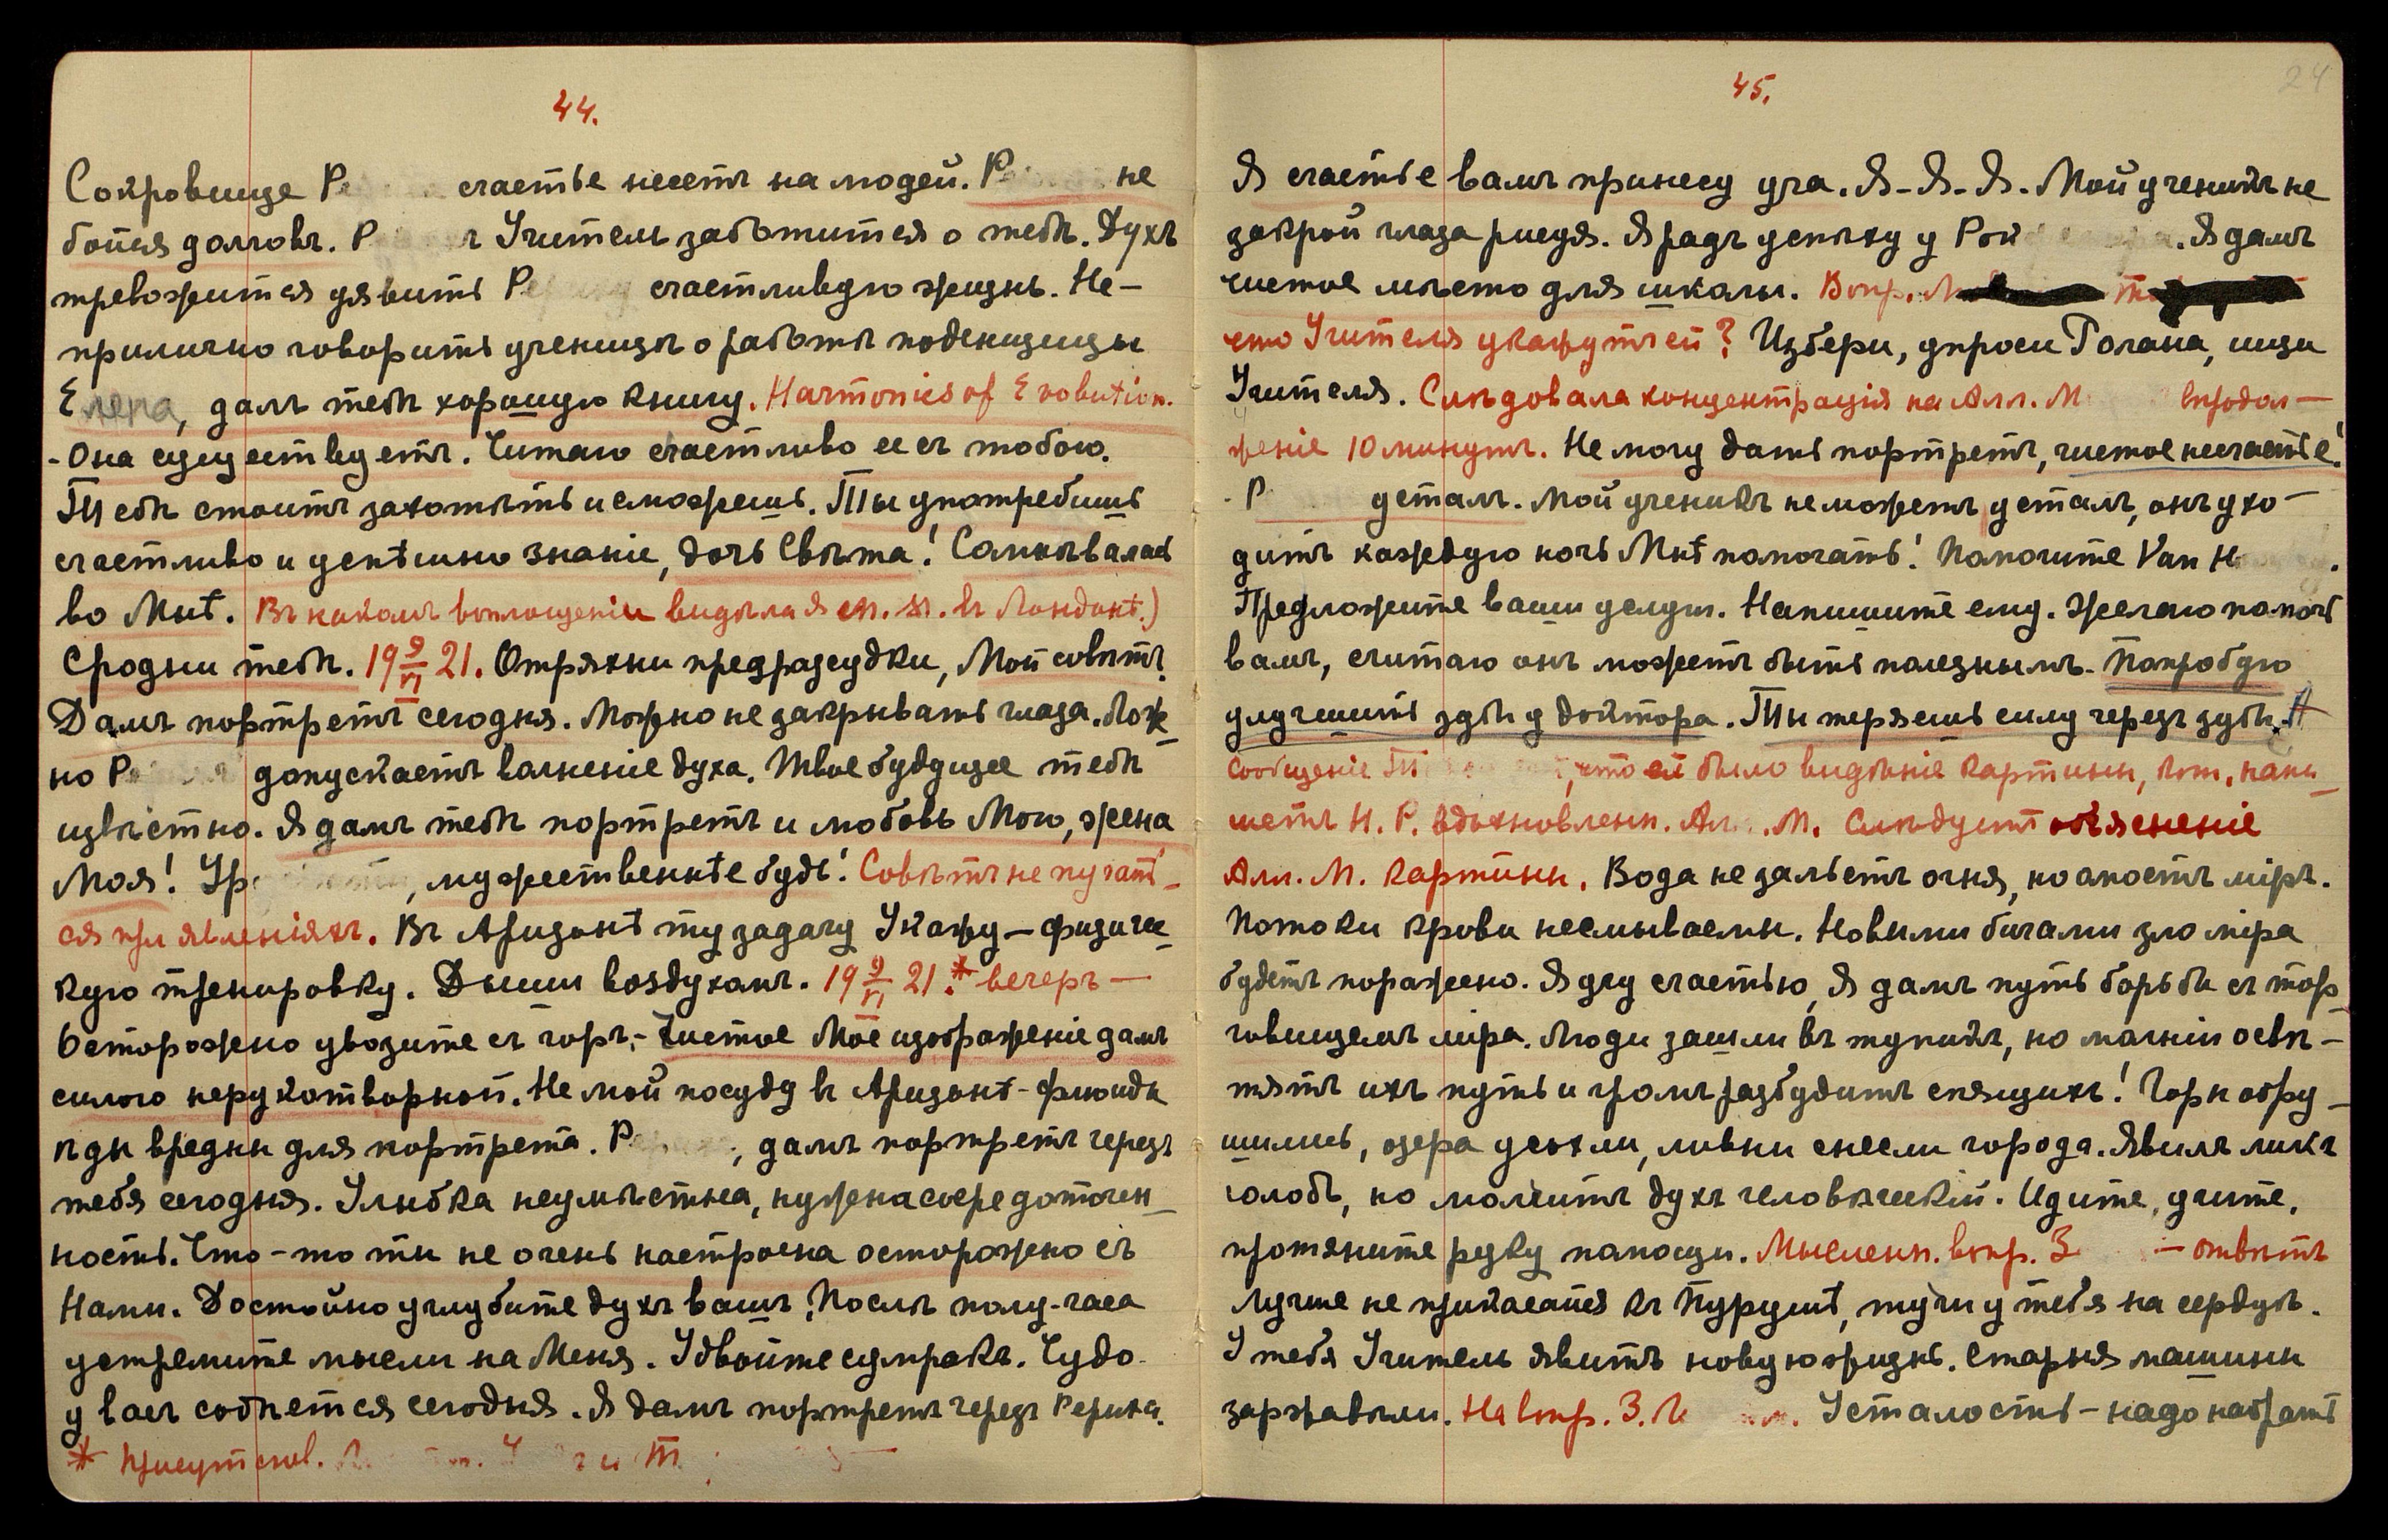 44.
Сокровище Р счастье несетъ на людей. Р не
бойся долговъ. Р ъ Учитель заботится о тебѣ. Духъ
тревожится уявить Р счастливую жизнь. Не-
прилично говорить ученицѣ о работѣ поденщицы
Елена, дамъ тебѣ хорошую книгу. Harmonics of Evolution.
- Она существуетъ. Читаю счастливо ее съ тобою.
Тебѣ стоитъ захотѣть и сможешь. Ты употребишь
счастливо и успѣшно знаніе, дочь Свѣта! Сомнѣвалась
во Мнѣ. Въ какомъ воплощеніи видѣла я въ Лондонѣ.)
Сродни тебѣ. 19 9/VI 21. Отряхни предразсудки, Мой совѣтъ.
Дамъ портретъ сегодня. Можно не закрывать глаза. Лож_
но Р допускаетъ волненіе духа. Твое будущее тебѣ
извѣстно. Я дамъ тебѣ портретъ и любовь Мою, жена
Моя! Ур , мужественнѣе будь! Совѣтъ не пугать_
ся при явленіяхъ. Въ Аризонѣ ту задачу Укажу – физичес_
кую тренировку. Дыши воздухомъ. 19 9/VI 21.* вечеръ —
Осторожно увозите съ горъ, - Чистое Мое изображеніе дамъ
силою нерукотворной. Не мой посуду въ Аризонѣ - флюиды
ѣды вредны для портрета. Р , дамъ портретъ черезъ
тебя сегодня. Улыбка неумѣстна, нужна сосредоточен_
ность. Что-то ты не очень настроена осторожно съ
Нами. Достойно углубите духъ вашъ. Послѣ полу-часа
устремите мысли на Меня. Удвойте сумракъ. Чудо
у васъ соткется сегодня. Я дамъ портретъ черезъ Рериха.
* Присутствов. и Т
45.
24
Я счастье вамъ принесу уча. Я-Я-Я. Мой ученикъ не
закрой глаза рисуя. Я радъ успѣху у Рой . Я дамъ
чистое мѣсто для школы. Вопр. М
что Учителя укажутъ ей? Избери, упроси Голана, ищи
Учителя. Слѣдовала концентрація на Алл. М впродол—
женіе 10 минутъ. Не могу дать портретъ, чистое несчастье!
- Р усталъ. Мой ученикъ не можетъ усталъ, онъ ухо—
дитъ каждую ночь Мнѣ помогать! Помогите Van H .
Предложите ваши услуги. Напишите ему. Желаю помочь
вамъ, считаю онъ можетъ быть полезнымъ. Попробую
улучшить зубы у доктора. Ты теряешь силу черезъ зубы.
Сообщеніе Т , что ей было видѣніе картины, кот. напи_
шетъ Н. Р. вдохновленн. Алл. М. Слѣдуетъ объясненіе
Алл. М. картины. Вода не зальетъ огня, но омоетъ міръ.
Потоки крови несмываемы. Новыми бичами зло міра
будетъ поражено. Я учу счастью, Я дамъ путь борьбы съ тор_
жищемъ міра. Люди зашли въ тупикъ, но молніи освѣ—
тятъ ихъ путь и громъ разбудитъ спящихъ! Горы обру_
шились, озера усохли, ливни снесли города. Явилъ ликъ
голодъ, но молчитъ духъ человѣческій. Идите, учите,
протяните руку помощи. Мысленн. вопр. З — отвѣтъ
Лучше не прикасайся къ Пурушѣ, тучи у тебя на сердцѣ.
У тебя Учитель явитъ новую жизнь. Старыя машины
заржавѣли. На вопр. З. Л Усталость – надо набрать